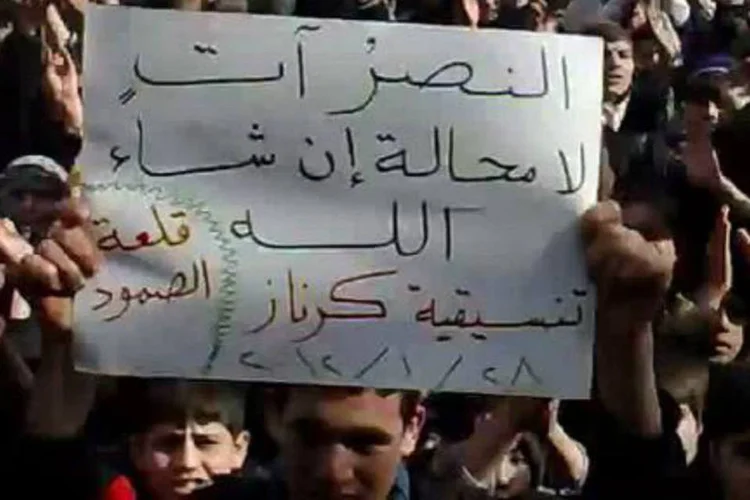 النصرُ آتٍ
لا محالة إن شاء
الله
قلعة
الصمود
تنسيقية كرناز
٢٨/١/٢٠١٢